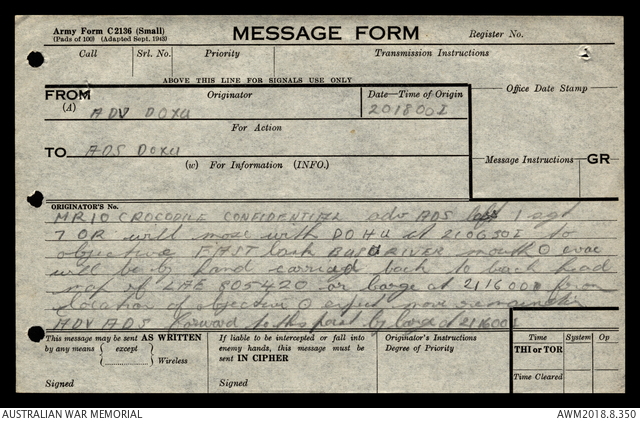 Army Form C2136 (Small)
(Pads of 100) (Adapted Sept. 1943)
MESSAGE FORM
Register No.
Call Srl. No. Priority Transmission Instructions
ABOVE THIS LINE FOR SIGNALS USE ONLY
FROM Originator Date—Time of Origin Office Date Stamp
(A) ADV DOXU 201800I
For Action
TO ADS DOXU
(w) For Information (INFO.)
Message Instructions GR
ORIGINATOR'S No.
MR10 CROCODILE CONFIDENTIAL adv ADS 1 sgt
7 OR will move with DOHU at 210630I to
objective EAST bank RIVER mouth O evac
will be by hand carried back to
map ref 805420 or barge at 211600I from
location of objective O expect move
ADV ADS forward to this point by barge at 211600I
This message may be sent AS WRITTEN
by any means { except } Wireless
Signed
If liable to be intercepted or fall into
enemy hands, this message must be
sent IN CIPHER
Signed
Originator's Instructions
Degree of Priority
Time System Op
THI or TOR
Time Cleared
AUSTRALIAN WAR MEMORIAL AWM2018.8.350